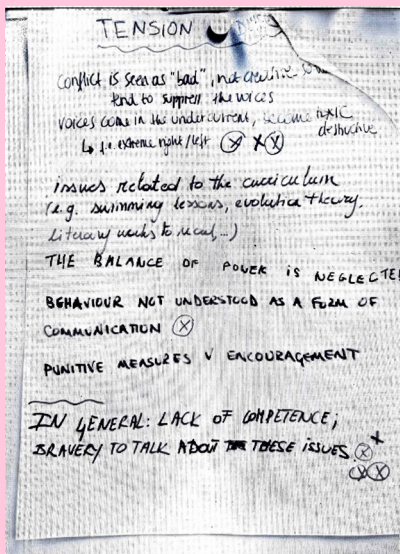 TENSION
Conflict is seen as "bad", not creative so we
tend to suppress the voices
voices come in the undercurrent, become toxic
destructive
↳ i.e. extreme right/left ⓧ x ⓧ
issues related to the curriculum
(e.g. swimming lessons, evolution theory,
literary works to read,...)
THE BALANCE OF POWER IS NEGLECTE
BEHAVIOUR NOT UNDERSTOOD AS A FORM OF
COMMUNICATION ⓧ
PUNITIVE MEASURES V ENCOURAGEMENT
IN GENERAL: LACK OF COMPETENCE;
BRAVERY TO TALK ABOUT THESE ISSUES. ⓧ x
ⓧⓧ